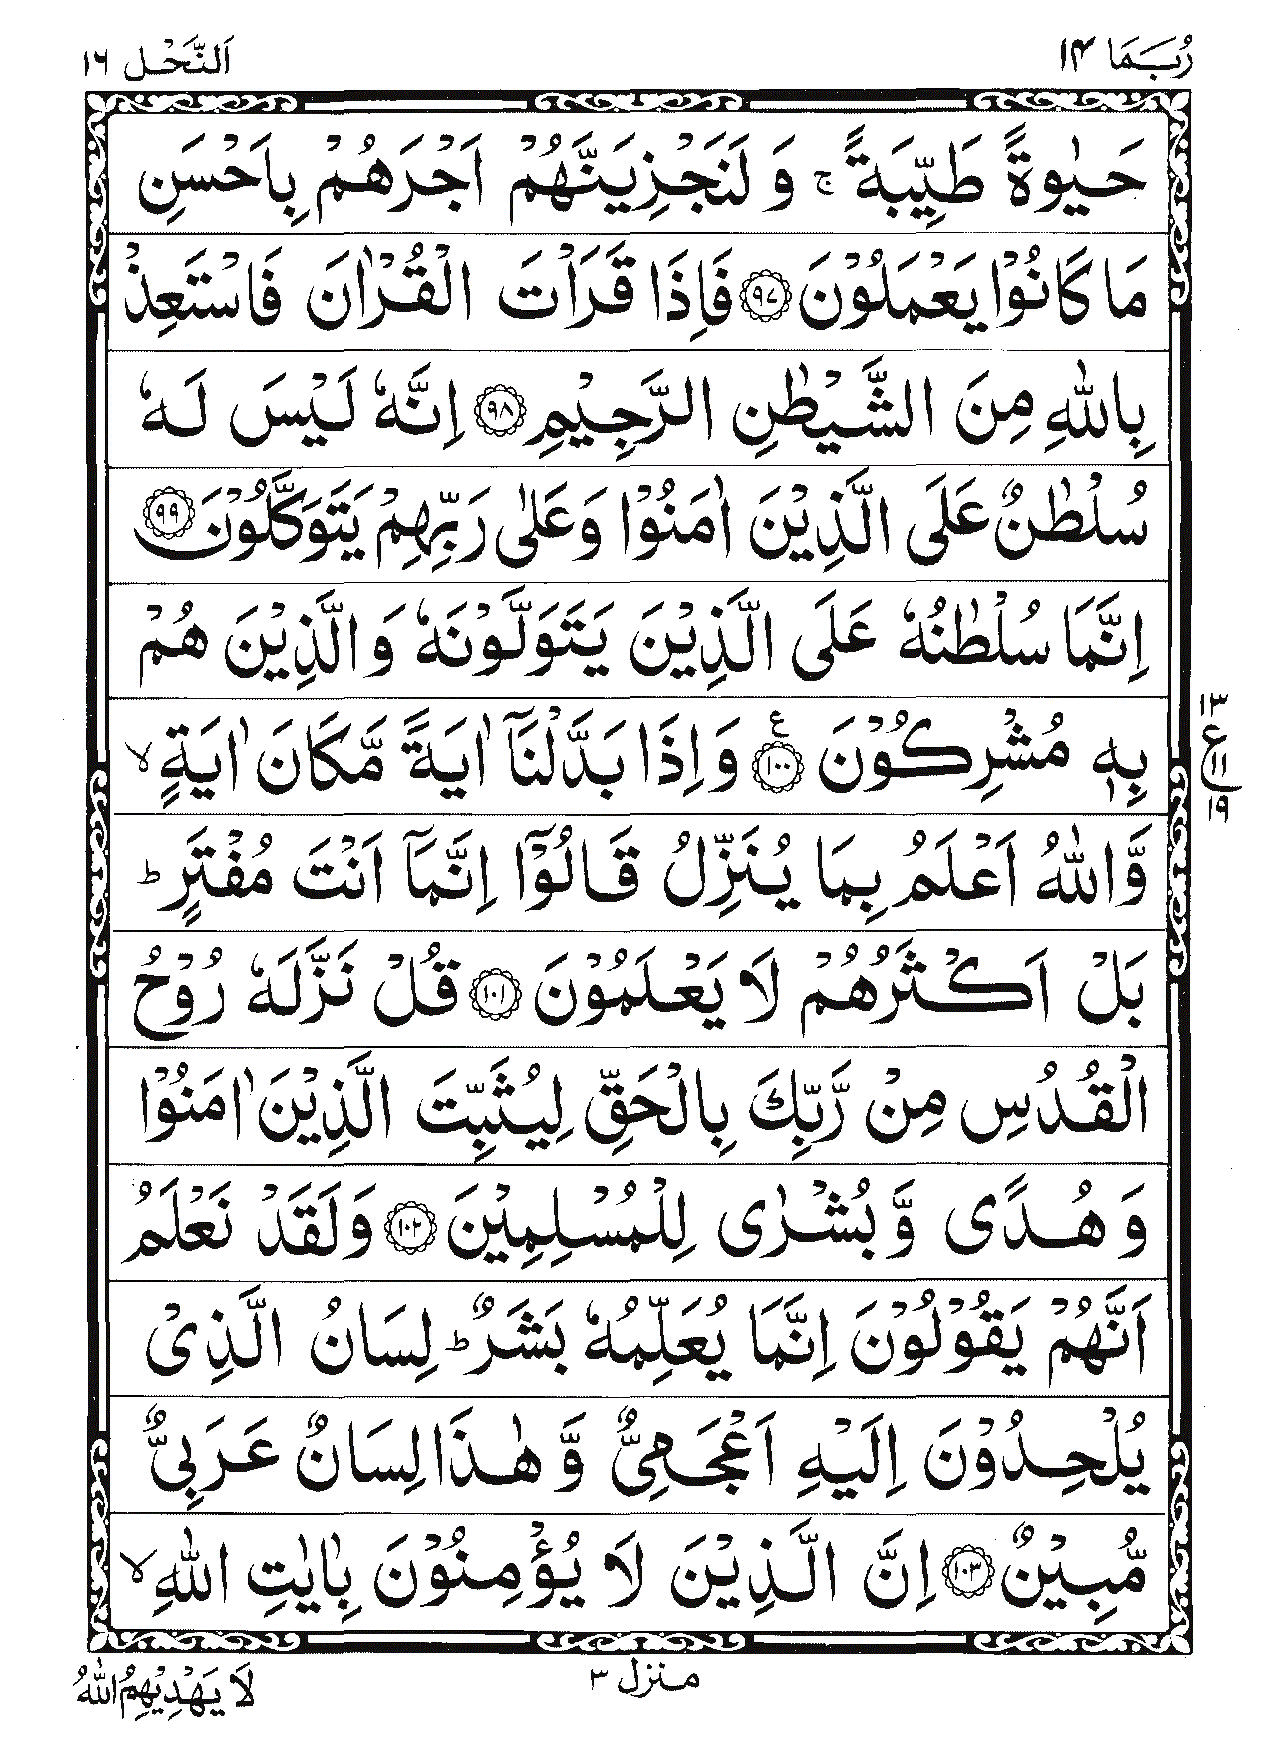 رُبَمَا ١٤
اَلنَّحْل ١٦
حَيٰوةً طَيِّبَةً ۚ وَ لَنَجْزِيَنَّهُمْ اَجْرَهُمْ بِاَحْسَنِ
مَا كَانُوْا يَعْمَلُوْنَ ﴿٩٧﴾ فَاِذَا قَرَاْتَ الْقُرْاٰنَ فَاسْتَعِذْ
بِاللّٰهِ مِنَ الشَّيْطٰنِ الرَّجِيْمِ ﴿٩٨﴾ اِنَّهٗ لَيْسَ لَهٗ
سُلْطٰنٌ عَلَى الَّذِيْنَ اٰمَنُوْا وَعَلٰى رَبِّهِمْ يَتَوَكَّلُوْنَ ﴿٩٩﴾
اِنَّمَا سُلْطٰنُهٗ عَلَى الَّذِيْنَ يَتَوَلَّوْنَهٗ وَالَّذِيْنَ هُمْ
بِهٖ مُشْرِكُوْنَ ﴿١٠٠﴾ ع وَاِذَا بَدَّلْنَآ اٰيَةً مَّكَانَ اٰيَةٍ ۙ
١٣
ع
١١
١٩
وَّاللّٰهُ اَعْلَمُ بِمَا يُنَزِّلُ قَالُوْٓا اِنَّمَآ اَنْتَ مُفْتَرٍ ؕ
بَلْ اَكْثَرُهُمْ لَا يَعْلَمُوْنَ ﴿١٠١﴾ قُلْ نَزَّلَهٗ رُوْحُ
الْقُدُسِ مِنْ رَّبِّكَ بِالْحَقِّ لِيُثَبِّتَ الَّذِيْنَ اٰمَنُوْا
وَ هُدًى وَّ بُشْرٰى لِلْمُسْلِمِيْنَ ﴿١٠٢﴾ وَلَقَدْ نَعْلَمُ
اَنَّهُمْ يَقُوْلُوْنَ اِنَّمَا يُعَلِّمُهٗ بَشَرٌ ؕ لِسَانُ الَّذِيْ
يُلْحِدُوْنَ اِلَيْهِ اَعْجَمِيٌّ وَّ هٰذَا لِسَانٌ عَرَبِيٌّ
مُّبِيْنٌ ﴿١٠٣﴾ اِنَّ الَّذِيْنَ لَا يُؤْمِنُوْنَ بِاٰيٰتِ اللّٰهِ ۙ
منزل ٣
لَا يَهْدِيْهِمُ اللّٰهُ